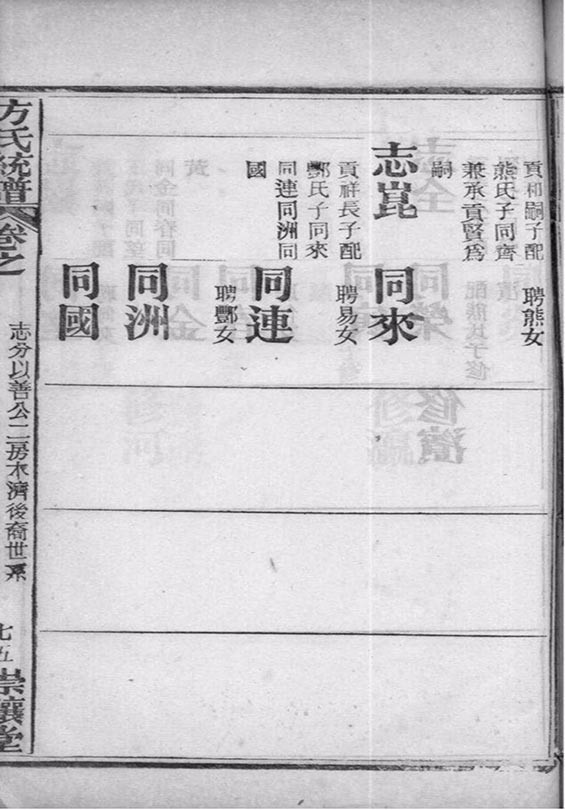 貢和嗣子配
熊氏子同齊
兼承貢賢為
嗣
聘熊女
志崑
貢祥長子配
酈氏子同來
同連同洲同
國
同來
聘易女
同連
聘酈女
同洲
同國
方氏統譜
卷之
志分以善公二房木濟後裔世系
七五
崇讓堂